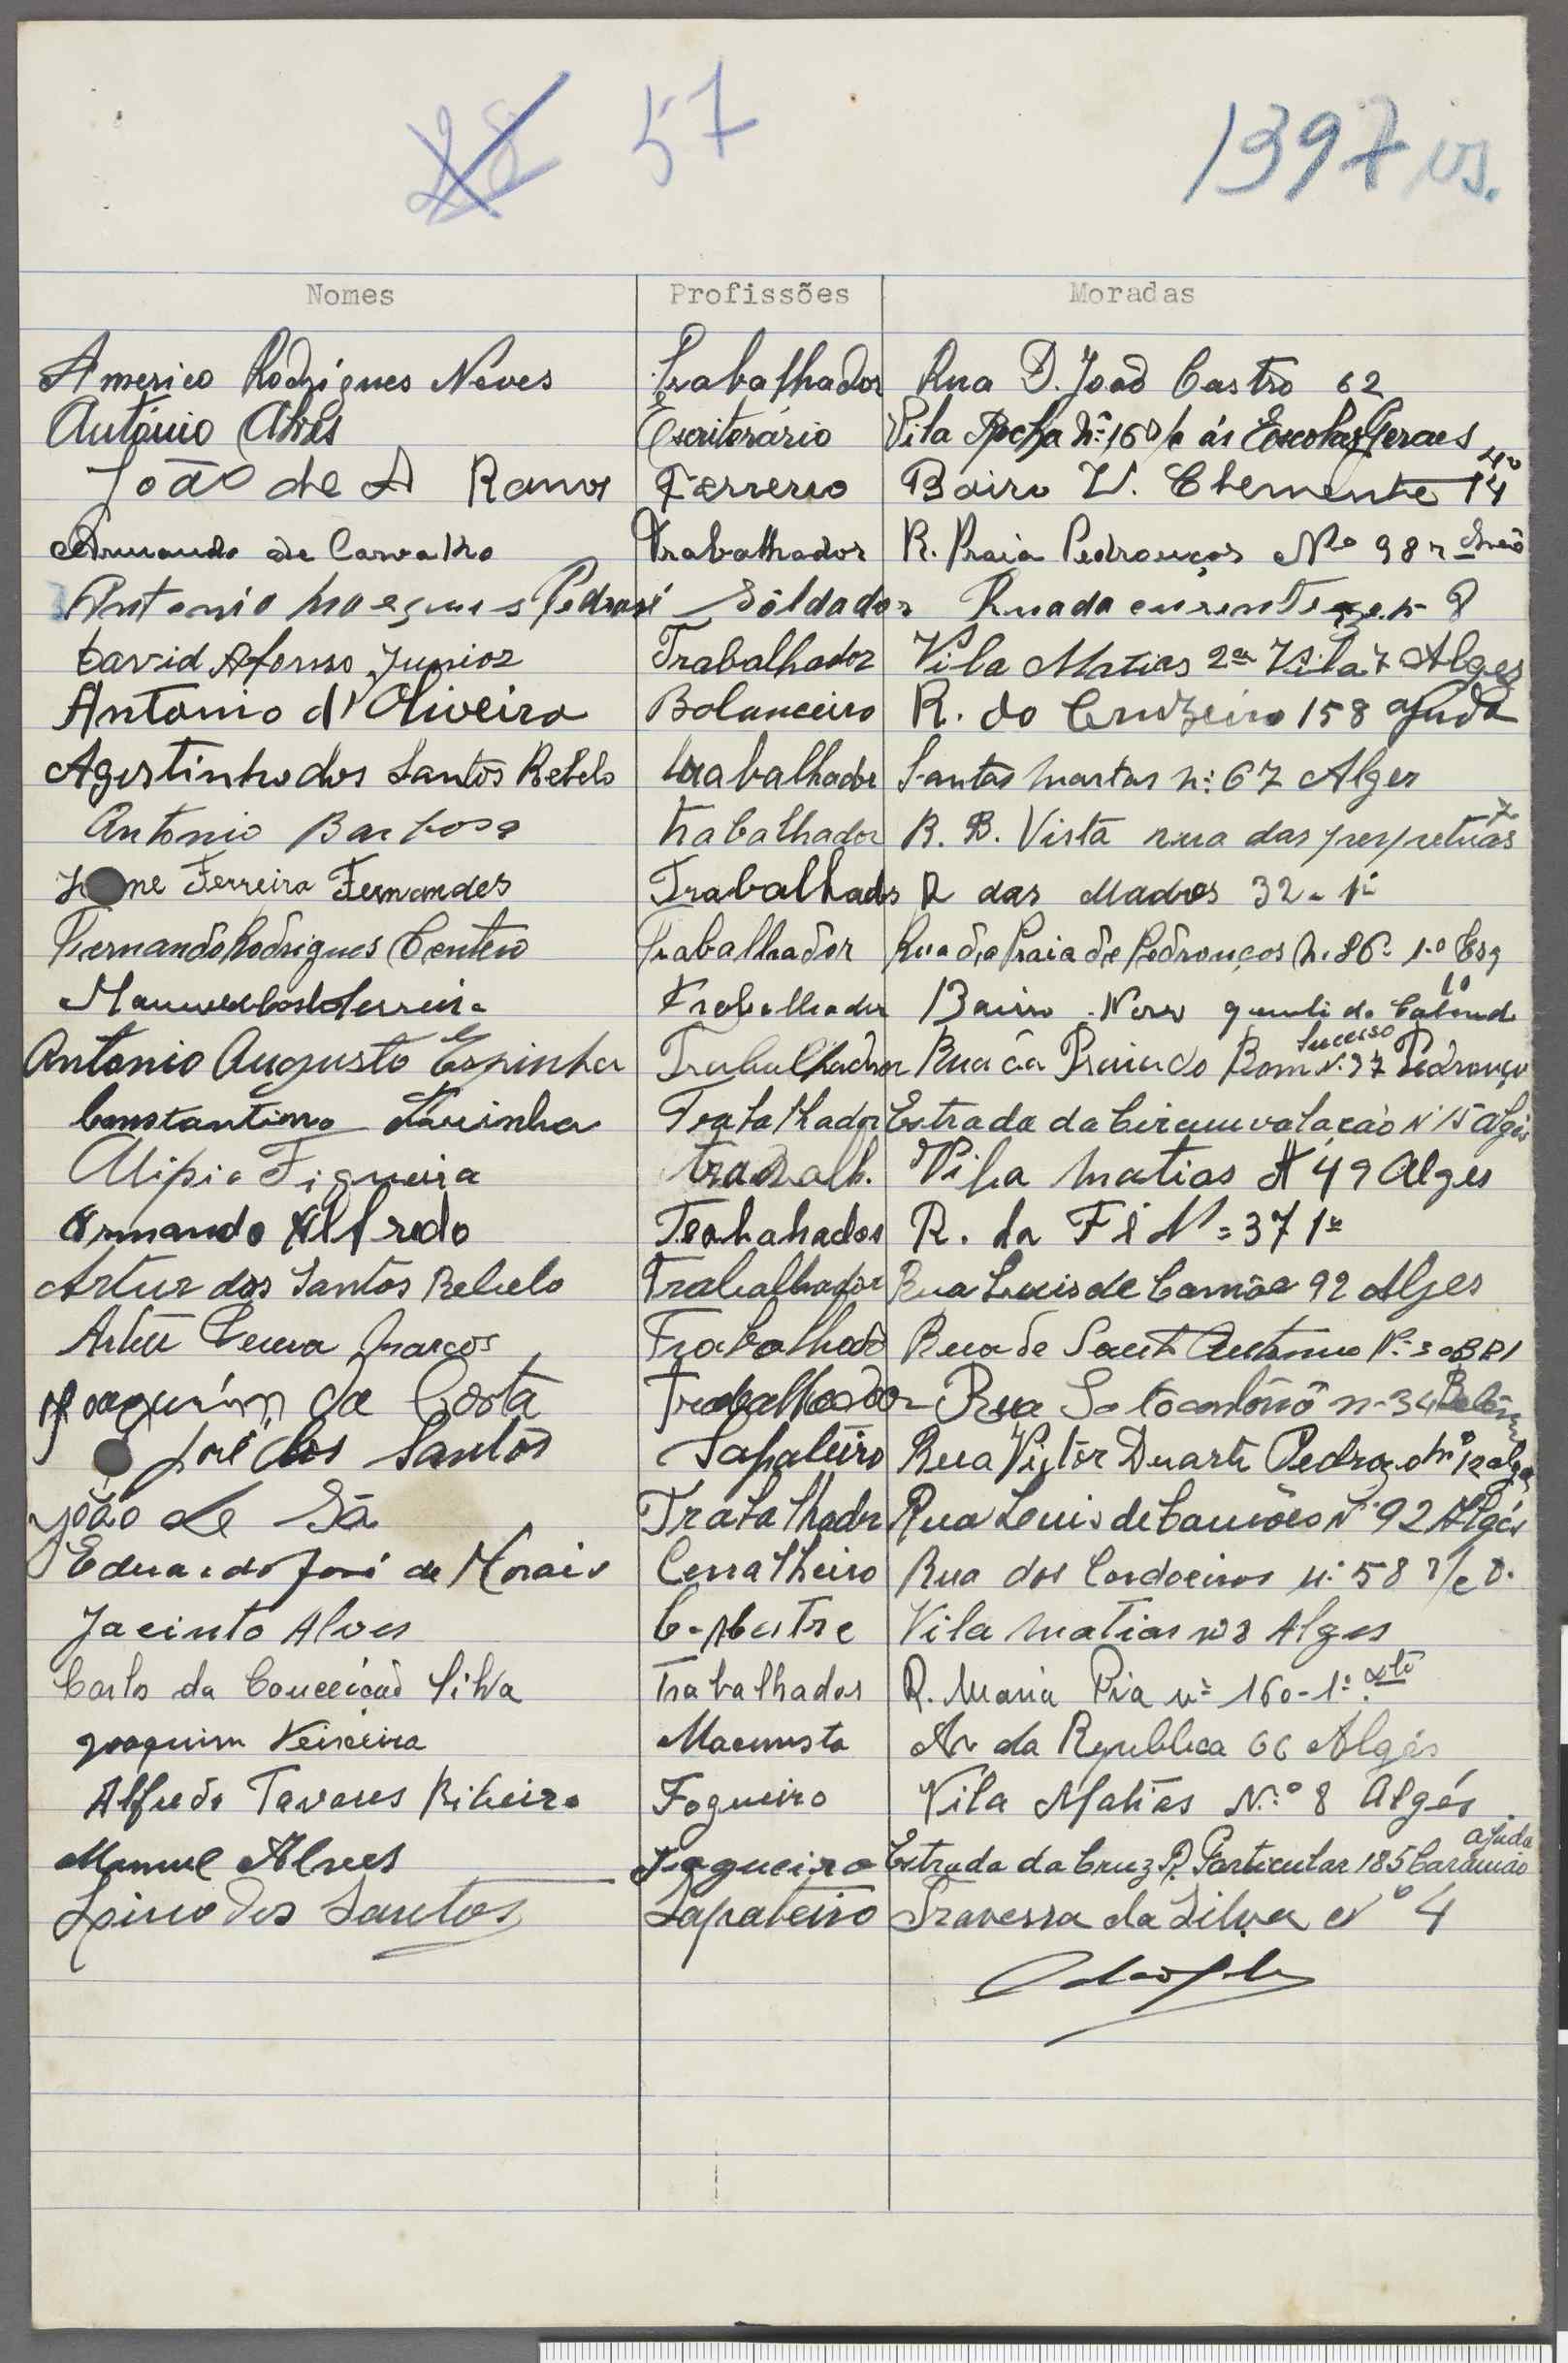 57 1397 vs.
Nomes Profissões Moradas
Americo Rodrigues Neves Trabalhador Rua D. João Castro 62
António Alves Escriterário Vila Rocha Nº 16 ás Escolas Geraes
João de A Ramos Ferrerio Bairo V. Clemente 14
Armando de Carvalho Trabalhador R. Praia Pedrouços Nº 98
Antonio Soldador Rua da 8
David Afonso Junior Trabalhador Vila Matias 2ª Vila 7 Alges
Antonio d'Oliveira Balanceiro R. do Cruzeiro 158 Ajuda
Agostinho dos Santos Rebelo trabalhador Santas Martas nº 67 Alges
Antonio Barbosa trabalhador R. B. Vista rua das perpretuas 7
Ferreira Fernandes Trabalhador R das Madres 32-1º
Fernando Rodrigues Centeio Trabalhador Rua da Praia de Pedrouços N. 86 1.º Esq
Trabalhador Bairro Novo
Antonio Augusto Espinha Trabalhador Rua da Praia do Bom Sucesso N. 37 Pedrouço
Constantino Trabalhador Estrada da Circumvalação Nº 15 Algés
Alipio Figueira trabalh. Vila Matias 49 Alges
Armando Alfredo R. da Fé Nº 37 1º
Artur dos Santos Rebelo Trabalhador Rua Luis de Camões 92 Alges
Artur Marcos Trabalhado Rua de Santo Antonio
Joaquim da Costa Trabalhador Rua 34 Belém
José dos Santos Sapateiro Rua Victor Duarte Pedrozo Nº
João de Sá Trabalhador Rua Luis de Camões Nº 92 Algés
Eduardo José de Morais Cerralheiro Rua dos Cordoeiros nº 58 r/c D.
Jacinto Alves C. Mestre Vila Matias nº 8 Alges
Carlos da Conceição Silva Trabalhador R. Maria Pia nº 160-1º
Joaquim Teixeira Macunista Av da Republica 66 Algés
Alfredo Tavares Ribeiro Fogueiro Vila Matias N.º 8 Algés
Manuel Alves Fogueiro Estrada da Cruz R. Particular 185 Caramão Ajuda
Lino dos Santos Sapateiro Travessa da Silva Nº 4